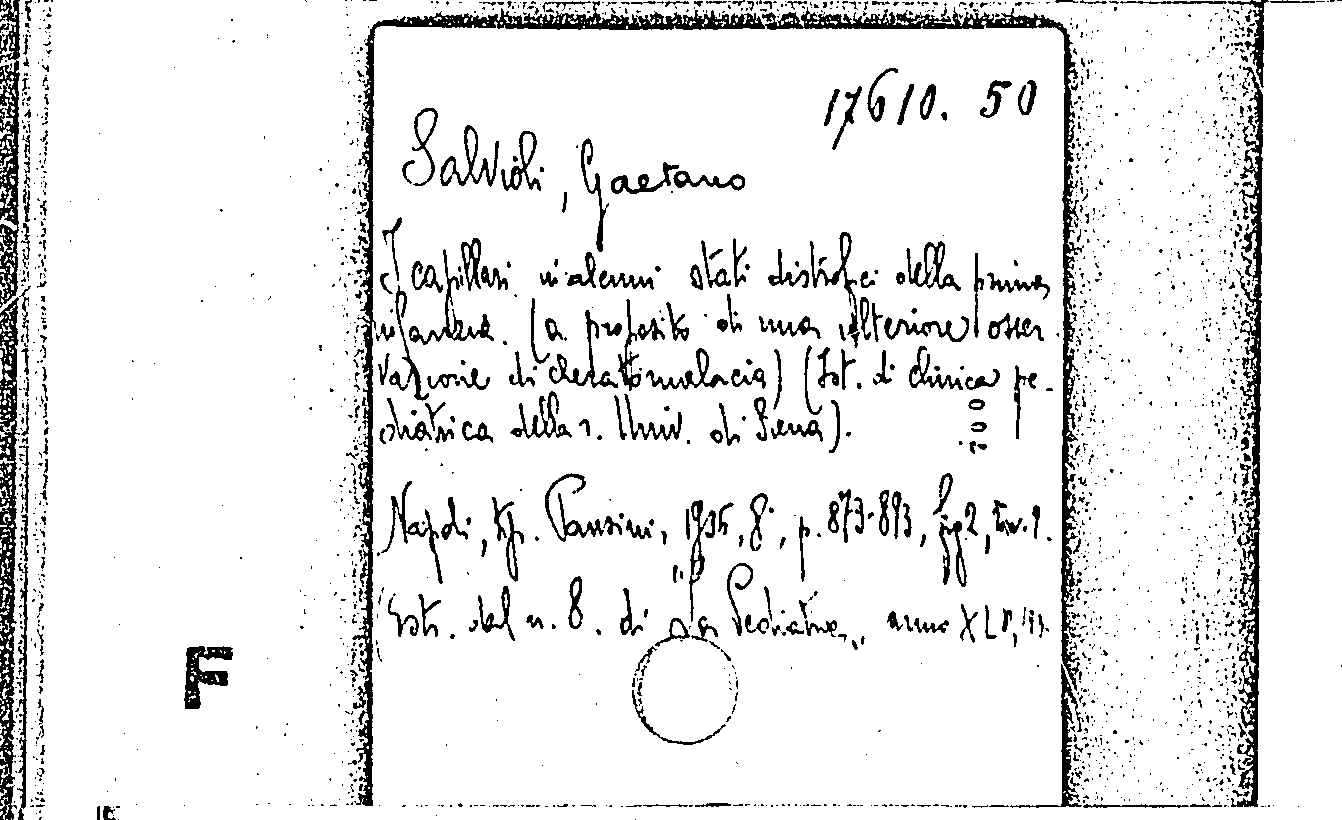 17610. 50
Salvioli, Gaetano
I capillari in alcuni stati distrofici della prima
infanzia. (a proposito di una ulteriore osser
vazione di cheratomalacia) (Ist. di clinica pe-
diatrica della r. Univ. di Siena).
200
Napoli, tip. Pansini, 1935, 8°, p. 873-893, fig 2, tav. 1.
(Estr. dal n. 8. di "La Pediatria", anno XLIII,
F